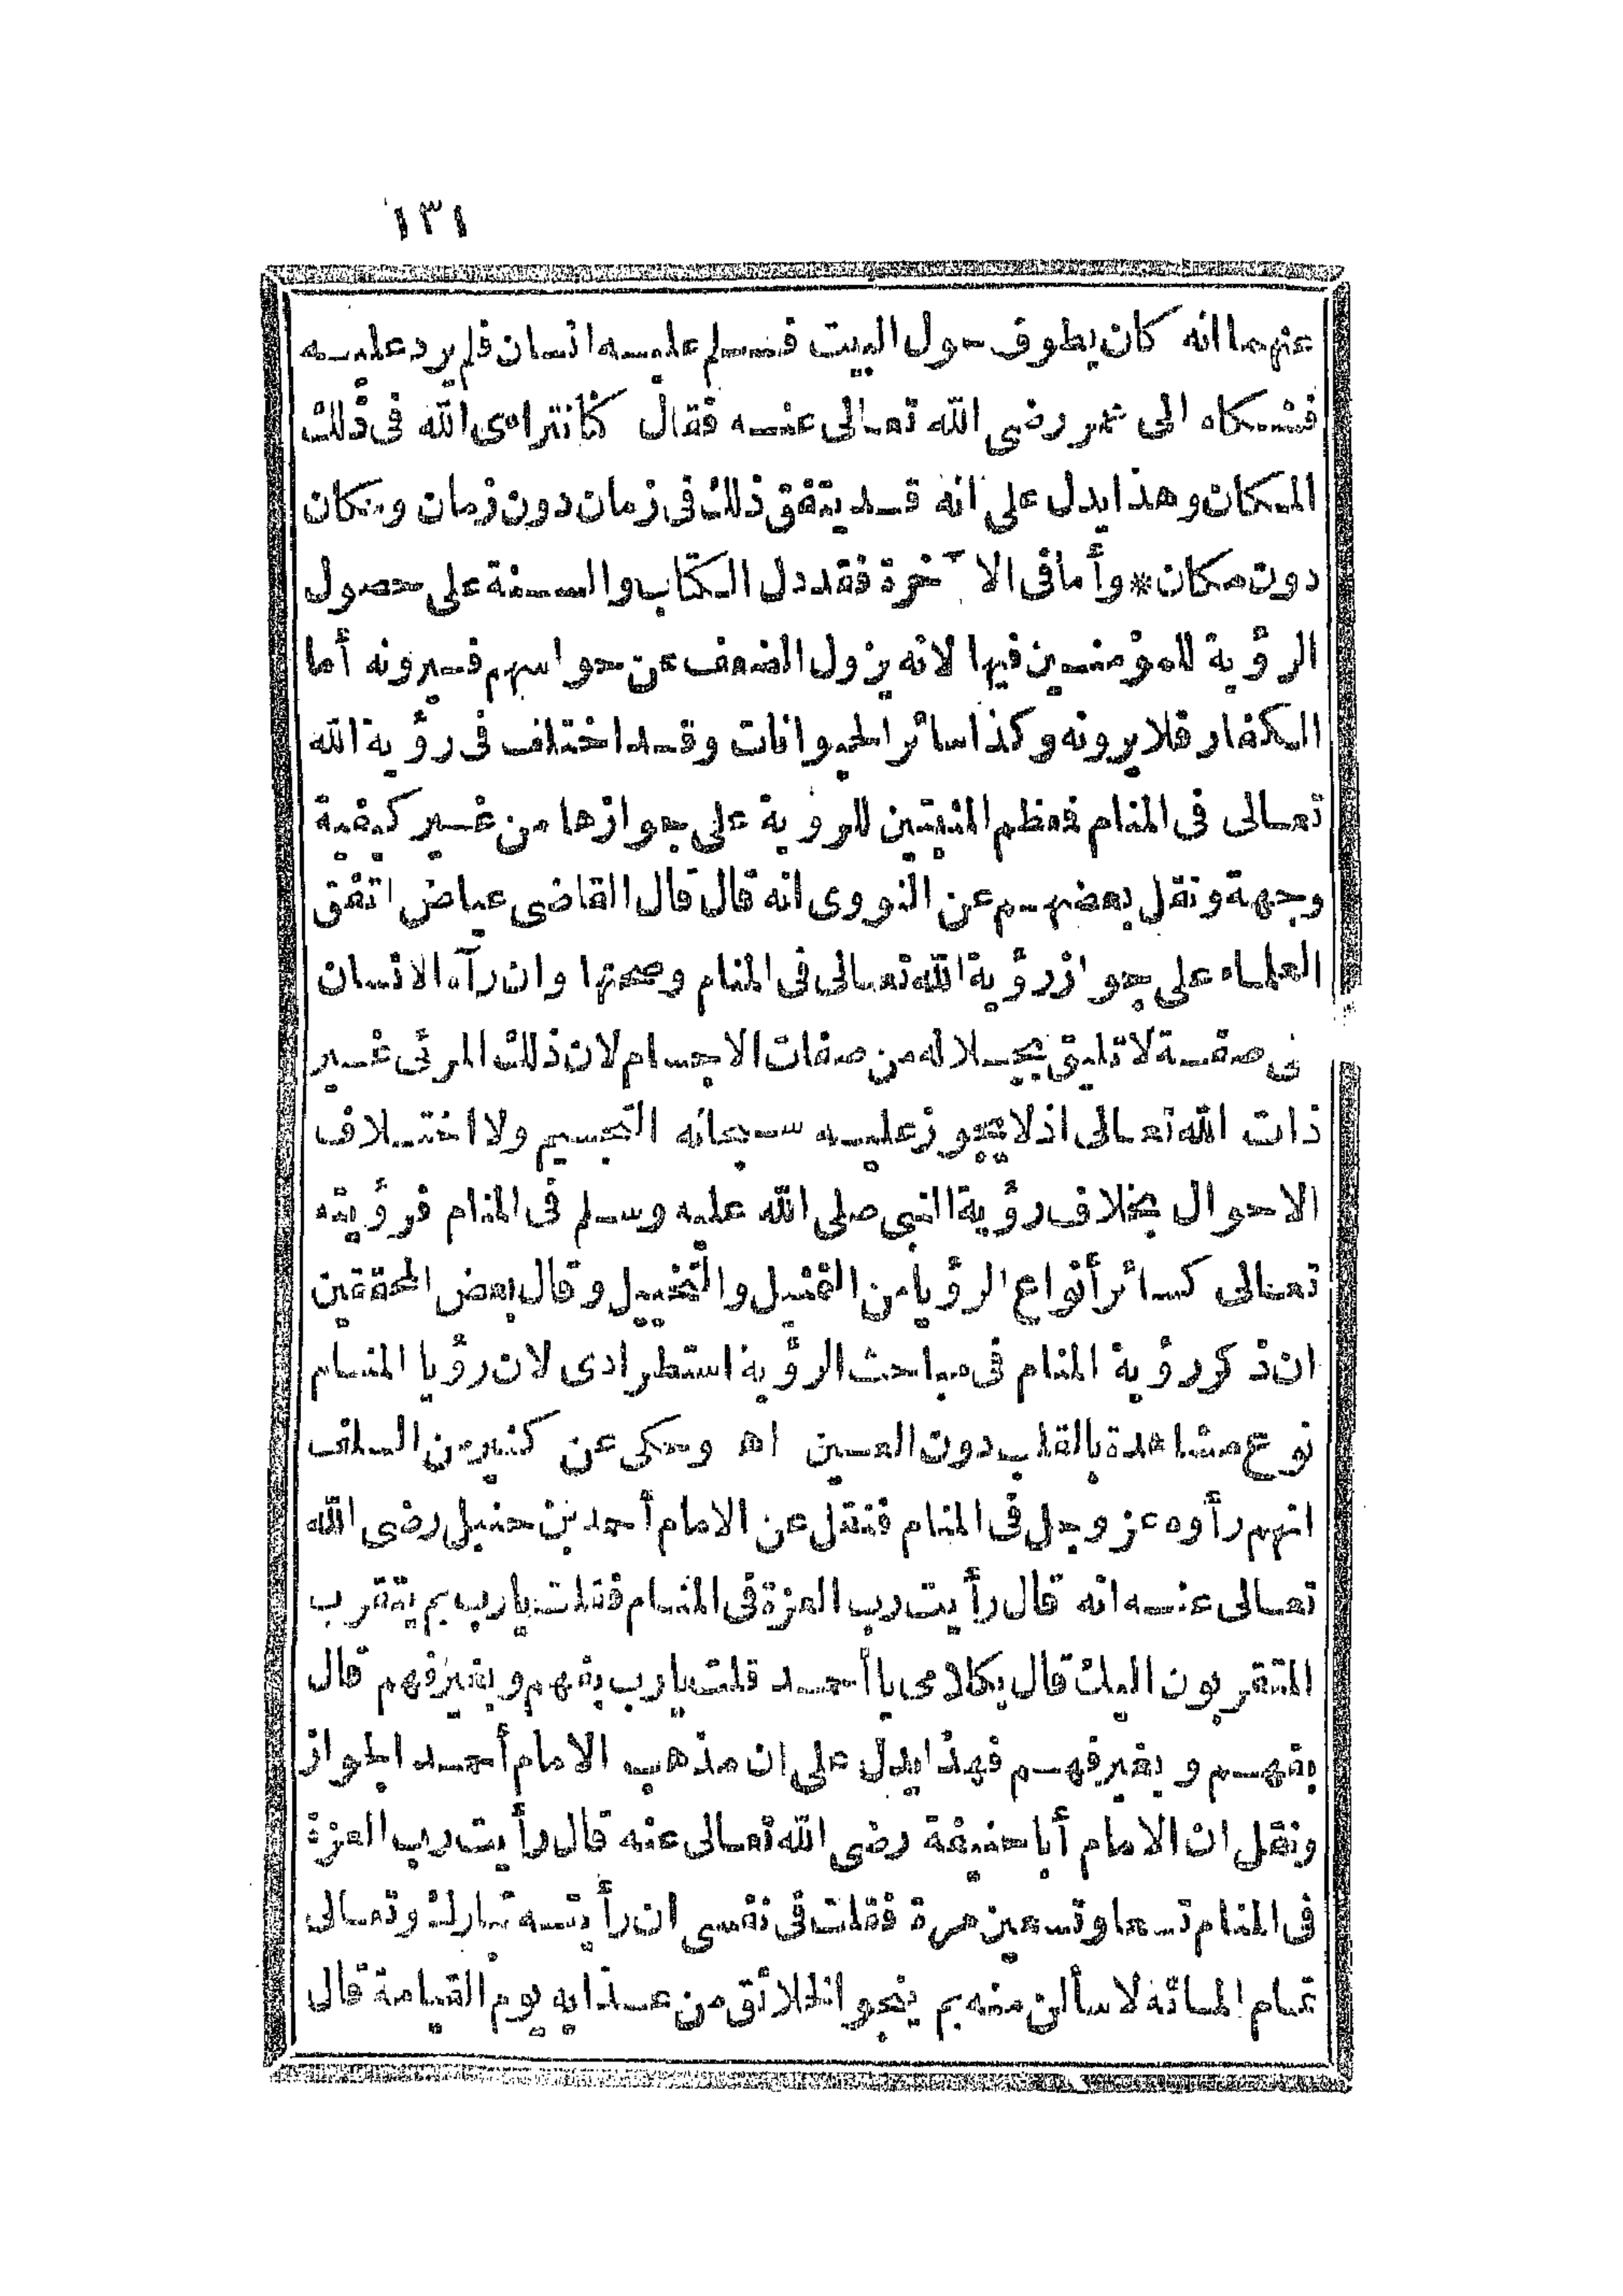 ١٣١
عنهما انه كان يطوف حول البيت فسلم عليه انسان فلم يرد عليه
فشكاه الى عمر رضى الله تعالى عنه فقال كنا نتراءى الله فى ذلك
المكان وهذا يدل على انه قد يتفق ذلك فى زمان دون زمان ومكان
دون مكان * وأما فى الآخرة فقد دل الكتاب والسنة على حصول
الرؤية للمؤمنين فيها لانه يزول الضعف عن حواسهم فيرونه أما
الكفار فلا يرونه وكذا سائر الحيوانات وقد اختلف فى رؤية الله
تعالى فى المنام فمعظم المثبتين للرؤية على جوازها من غير كيفية
وجهة ونقل بعضهم عن النووى انه قال قال القاضى عياض اتفق
العلماء على جواز رؤية الله تعالى فى المنام وصحتها وان رآه الانسان
فى صفة لا تليق بجلاله من صفات الاجسام لان ذلك المرئى غير
ذات الله تعالى اذ لا يجوز عليه سبحانه التجسيم ولا اختلاف
الاحوال بخلاف رؤية النبى صلى الله عليه وسلم فى المنام فرؤيته
تعالى كسائر أنواع الرؤيا من التمثيل والتخييل وقال بعض المحققين
ان ذكر رؤية المنام فى مباحث الرؤية استطرادى لان رؤيا المنام
نوع مشاهدة بالقلب دون العين اه وحكى عن كثير من السلف
انهم رأوه عز وجل فى المنام فنقل عن الامام أحمد بن حنبل رضى الله
تعالى عنه انه قال رأيت رب العزة فى المنام فقلت يارب بم يتقرب
المتقربون اليك قال بكلامى يا أحمد قلت يارب بفهم وبغير فهم قال
بفهم وبغير فهم فهذا يدل على ان مذهب الامام أحمد الجواز
ونقل ان الامام أبا حنيفة رضى الله تعالى عنه قال رأيت رب العزة
فى المنام تسعا وتسعين مرة فقلت فى نفسى ان رأيته تبارك وتعالى
تمام المائة لاسألن منه بم ينجو الخلائق من عذابه يوم القيامة قال